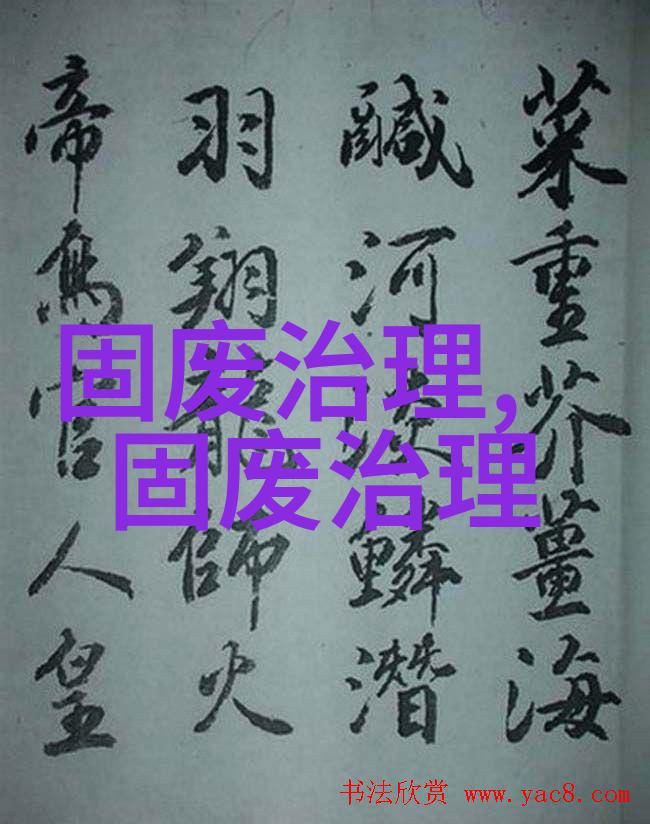 菜重芥薑海
鹹河淡鱗潛
羽翔龍師火
帝鳥官人皇
固废治理,
固废治理
书法欣赏 www.yac8.com